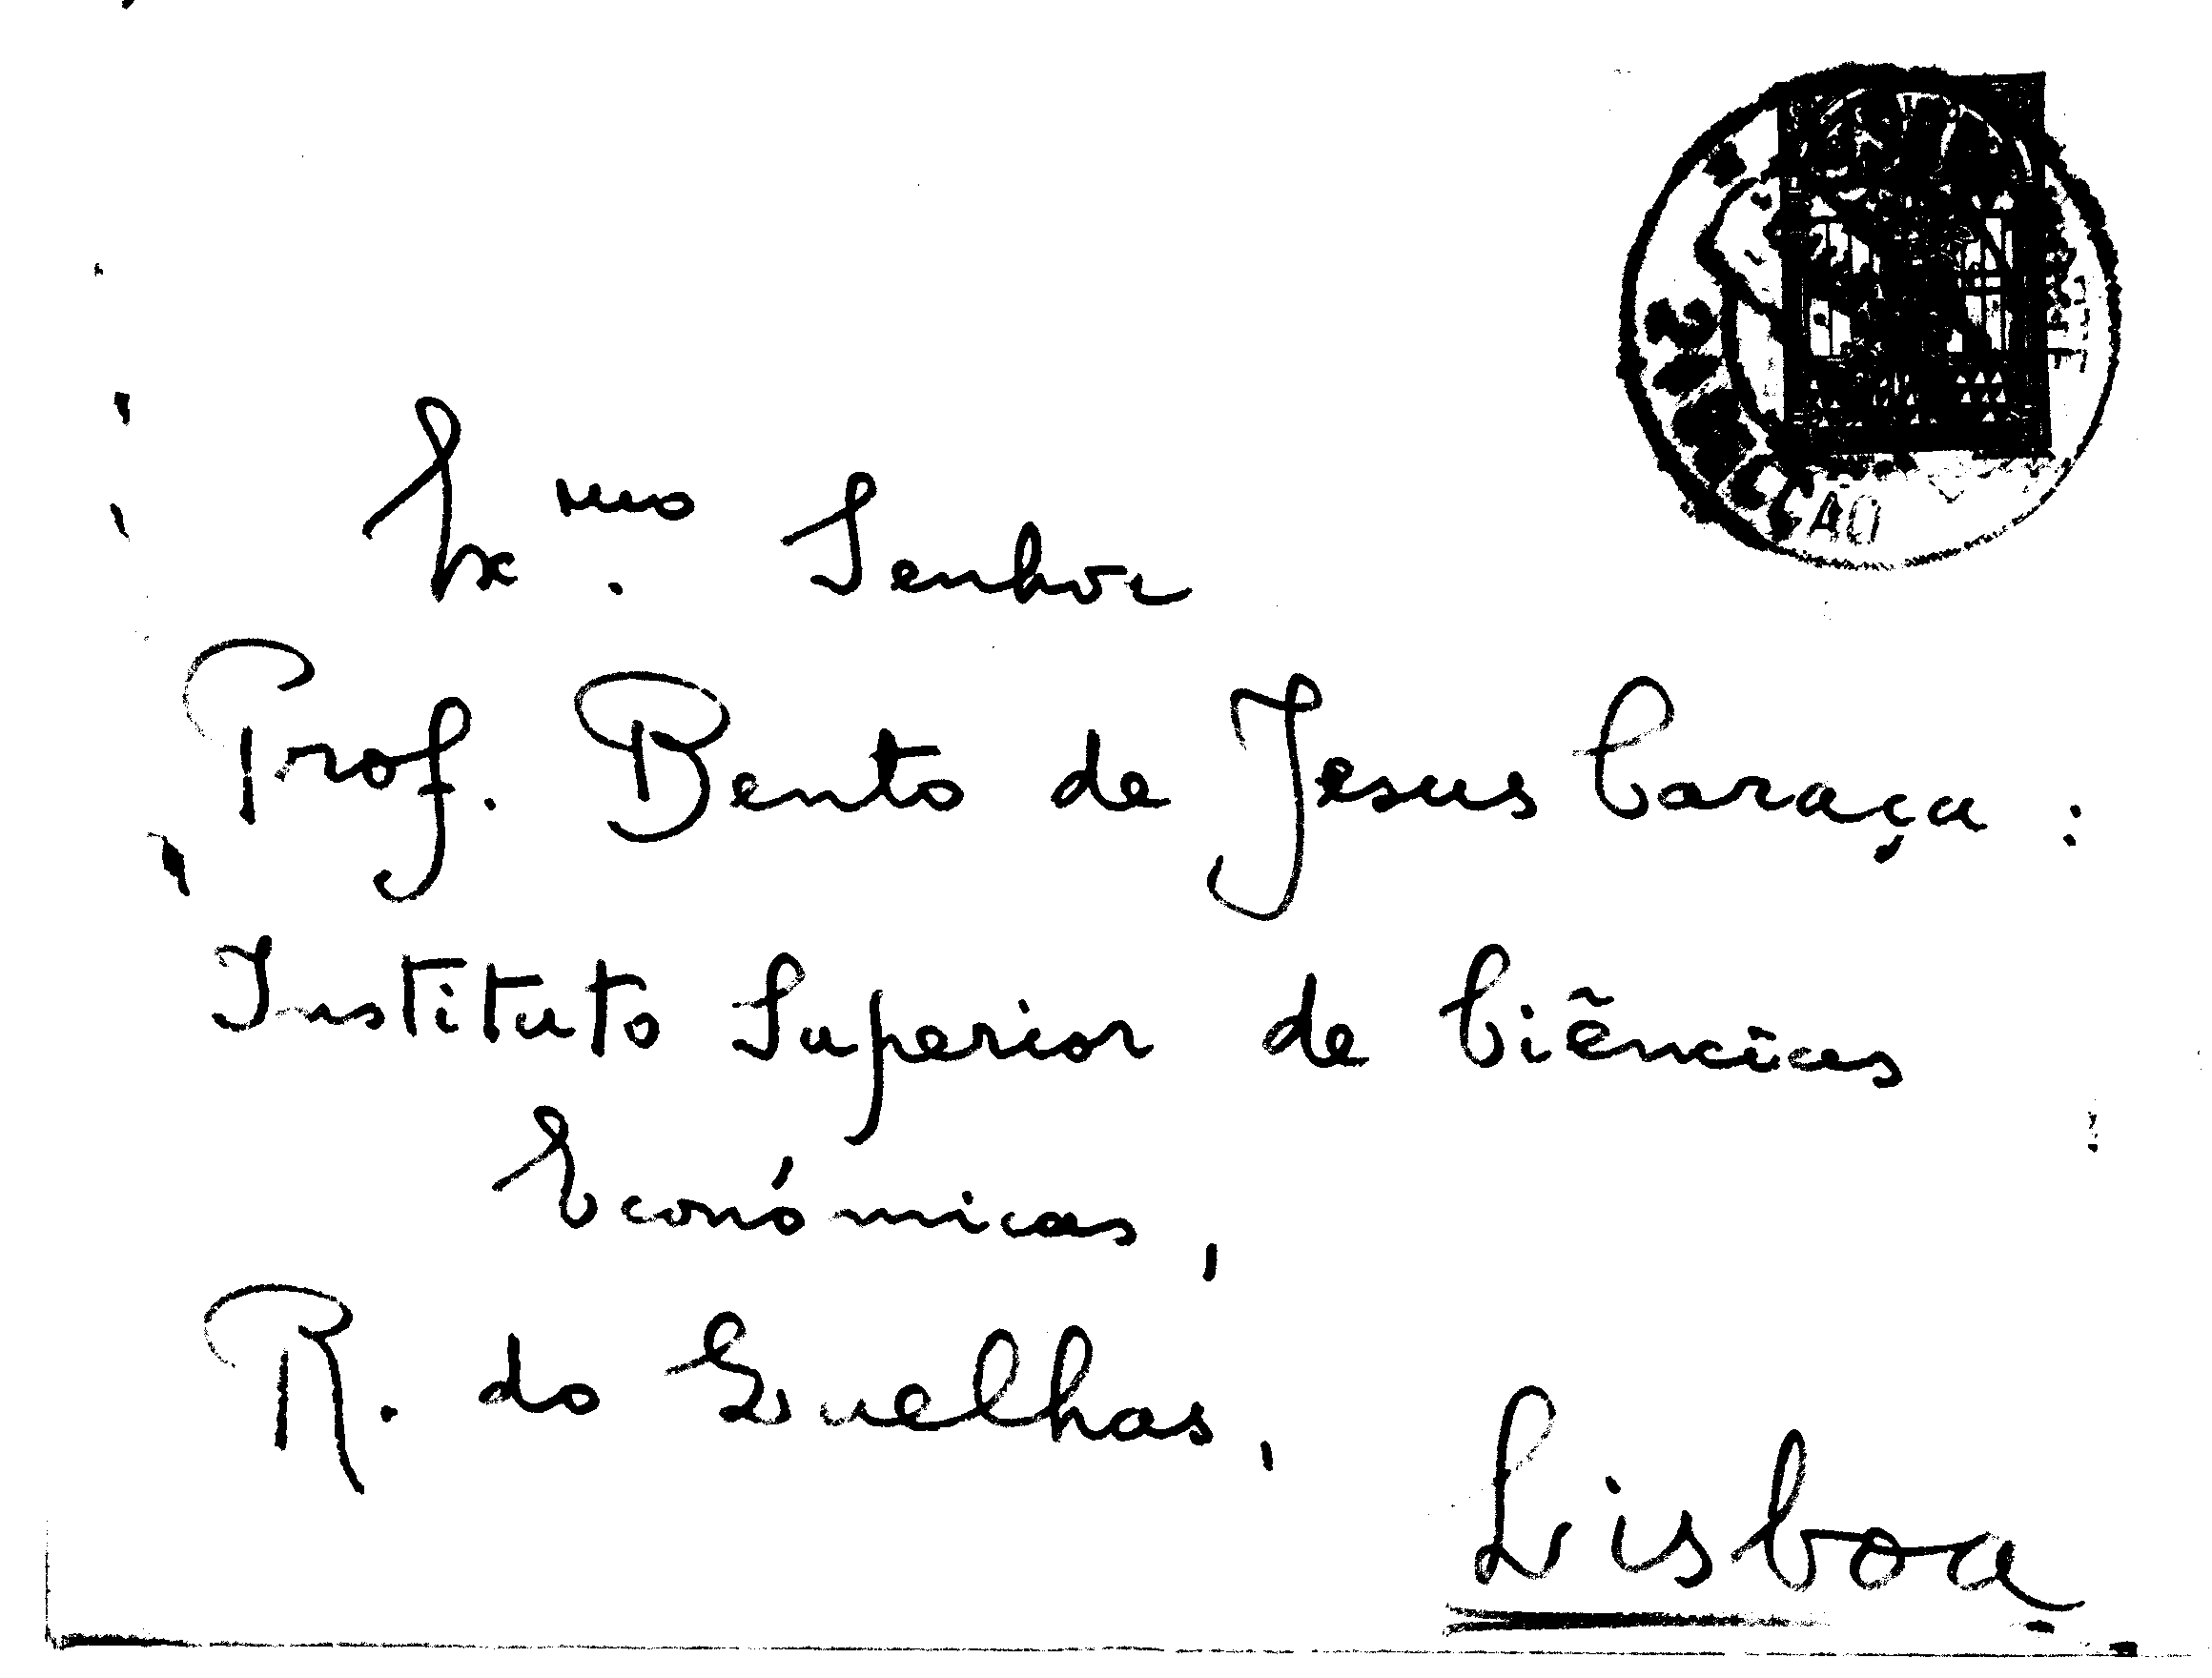 Ex.mo Senhor
Prof. Bento de Jesus Caraça:
Instituto Superior de Ciências
Económicas,
R. do Quelhas,
Lisboa